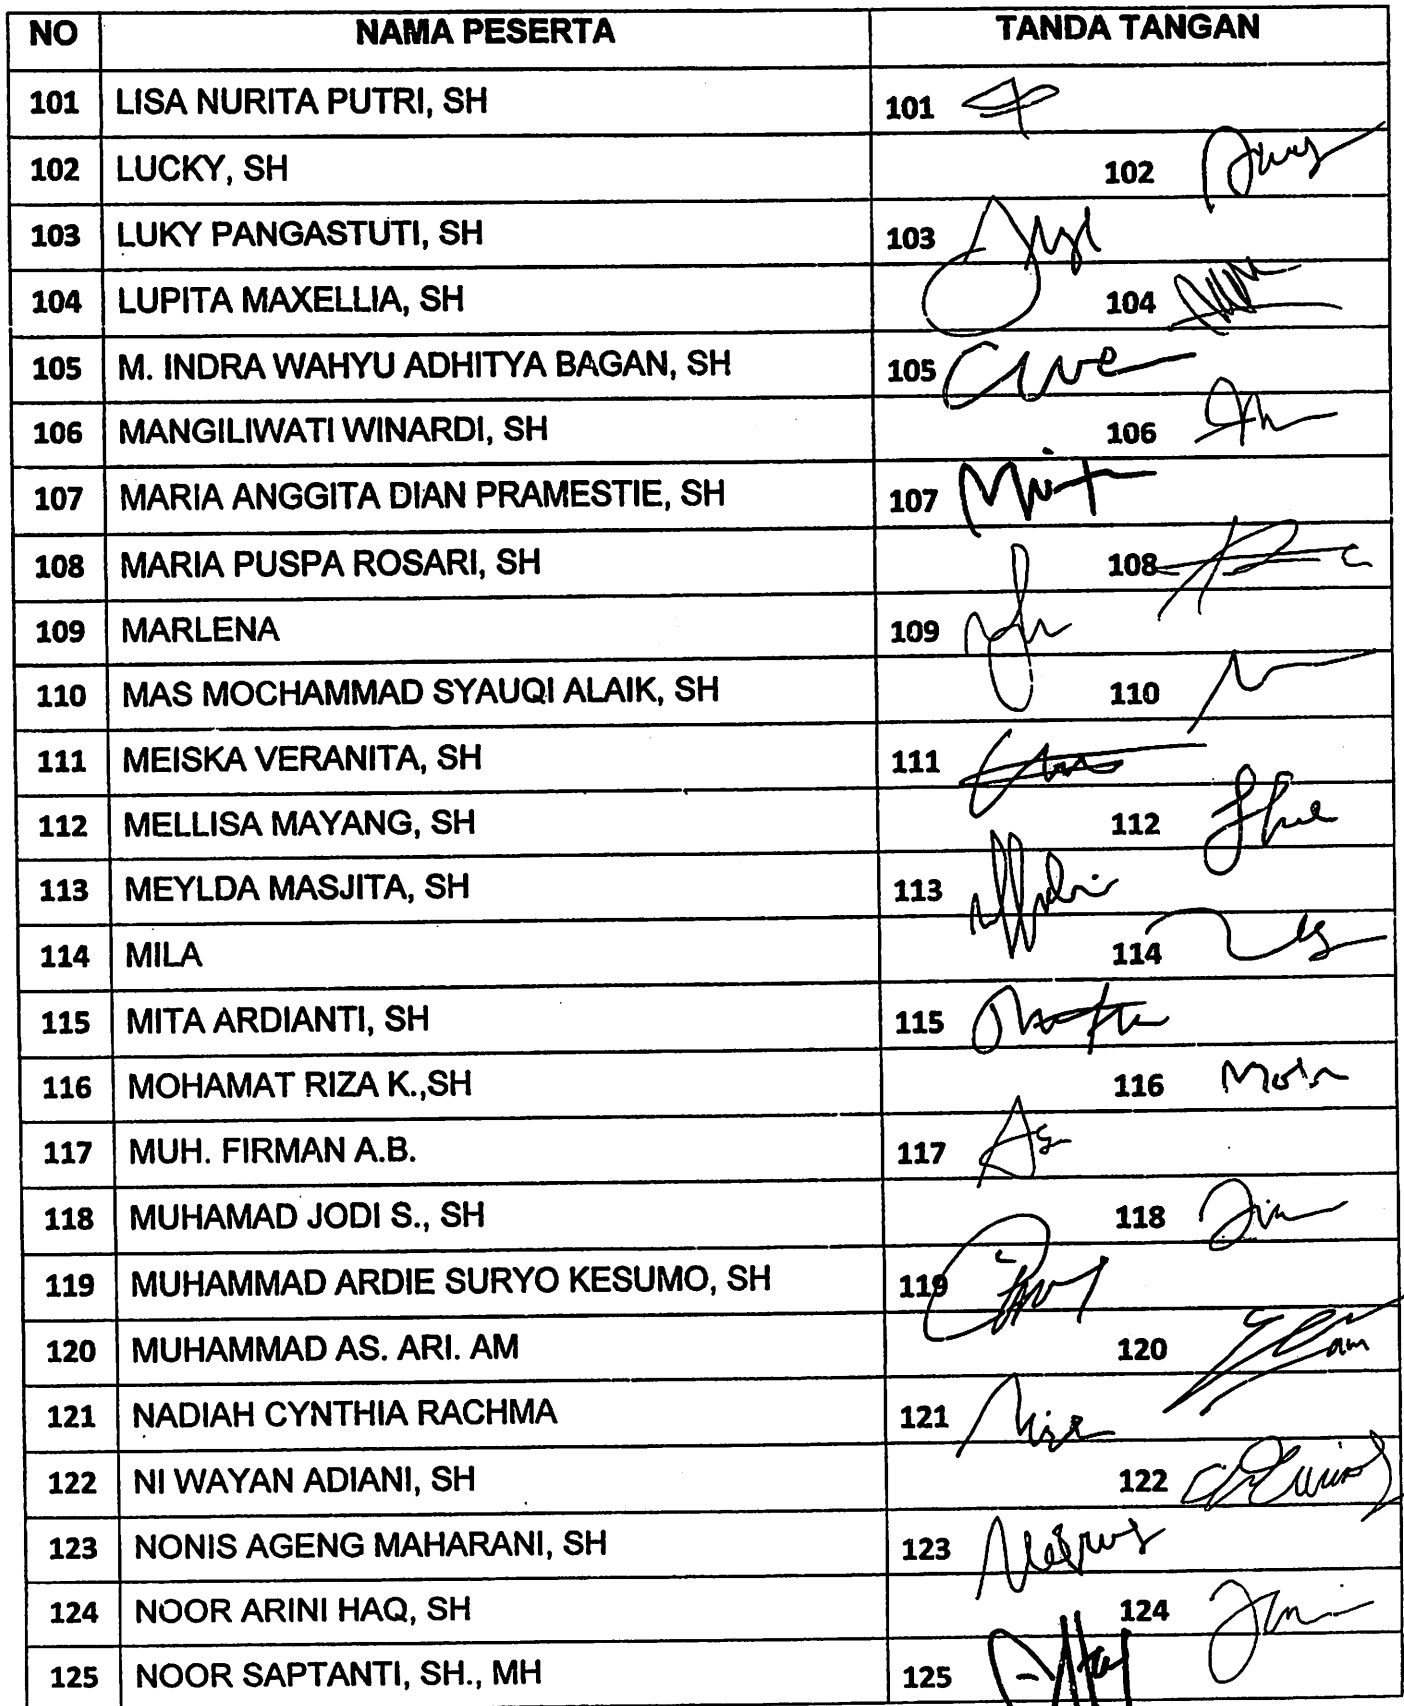 NO NAMA PESERTA TANDA TANGAN
101 LISA NURITA PUTRI, SH 101
102 LUCKY, SH 102
103 LUKY PANGASTUTI, SH 103
104 LUPITA MAXELLIA, SH 104
105 M. INDRA WAHYU ADHITYA BAGAN, SH 105
106 MANGILIWATI WINARDI, SH 106
107 MARIA ANGGITA DIAN PRAMESTIE, SH 107
108 MARIA PUSPA ROSARI, SH 108
109 MARLENA 109
110 MAS MOCHAMMAD SYAUQI ALAIK, SH 110
111 MEISKA VERANITA, SH 111
112 MELLISA MAYANG, SH 112
113 MEYLDA MASJITA, SH 113
114 MILA 114
115 MITA ARDIANTI, SH 115
116 MOHAMAT RIZA K.,SH 116
117 MUH. FIRMAN A.B. 117
118 MUHAMAD JODI S., SH 118
119 MUHAMMAD ARDIE SURYO KESUMO, SH 119
120 MUHAMMAD AS. ARI. AM 120
121 NADIAH CYNTHIA RACHMA 121
122 NI WAYAN ADIANI, SH 122
123 NONIS AGENG MAHARANI, SH 123
124 NOOR ARINI HAQ, SH 124
125 NOOR SAPTANTI, SH., MH 125